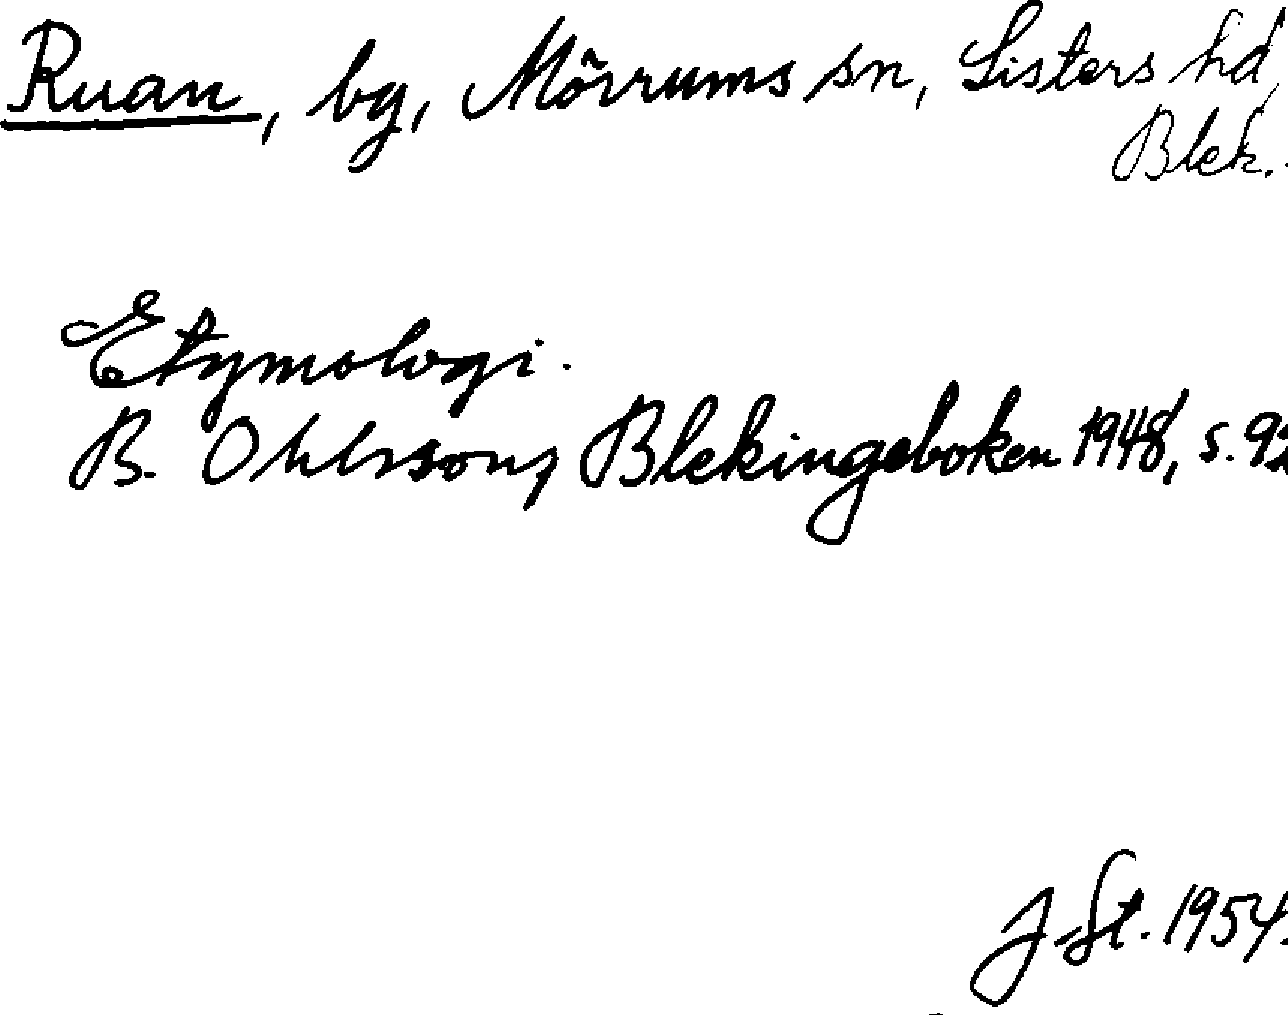 Ruan, bg, Mörrums sn, Listers hd,
Blek.
Etymologi.
B. Ohlsson, Blekingeboken 1948, s. 92
J. St. 1954.